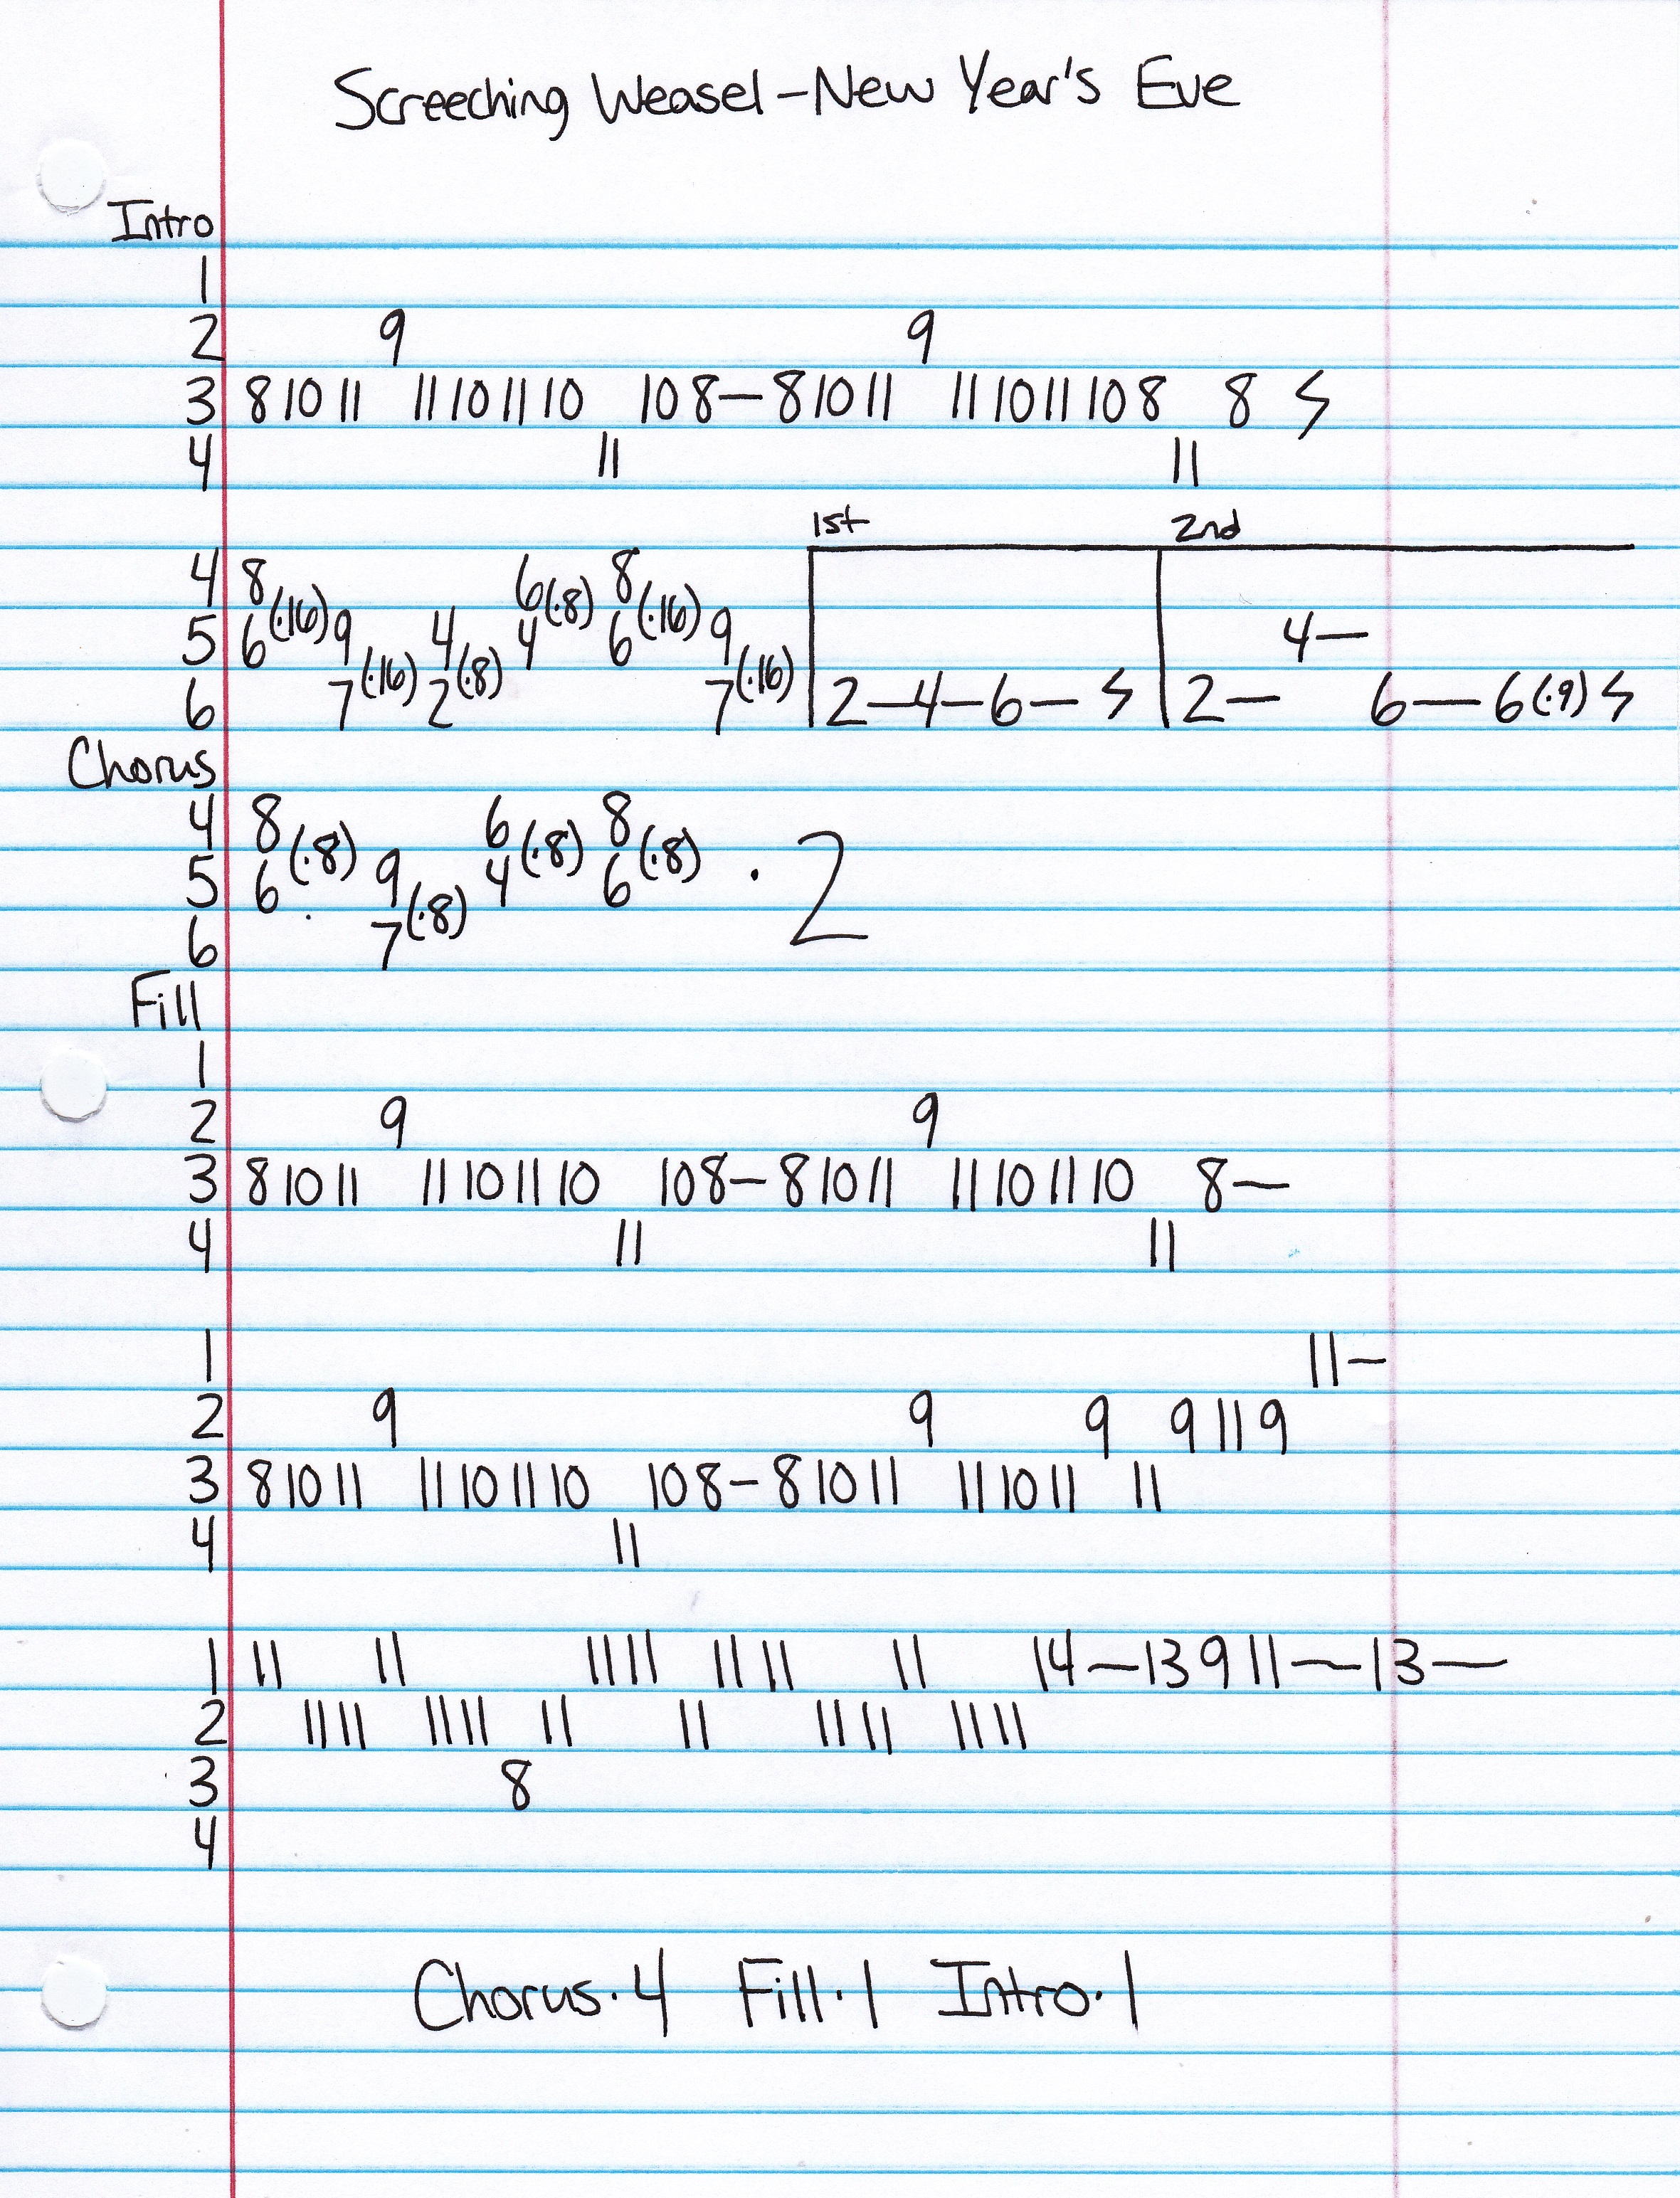 Screeching Weasel - New Year's Eve
Intro
1
2 9 9
3 8 10 11 11 10 11 10 10 8 — 8 10 11 11 10 11 10 8 8 ϟ
4 11 11
1st 2nd
4 8 (·16) 6 (·8) 8 (·16)
5 6 9 (·16) 4 (·8) 4 6 9 (·16) 4 —
6 7 2 7 2 — 4 — 6 — ϟ 2 — 6 — 6 (·9) ϟ
Chorus
4 8 (·8) 6 (·8) 8 (·8)
5 6 9 (·8) 4 6 · 2
6 7
Fill
1
2 9 9
3 8 10 11 11 10 11 10 10 8 — 8 10 11 11 10 11 10 8 —
4 11 11
1 11 —
2 9 9 9 9 11 9
3 8 10 11 11 10 11 10 10 8 — 8 10 11 11 10 11 11
4 11
1 11 11 11 11 11 11 11 14 — 13 9 11 — 13 —
2 11 11 11 11 11 11 11 11 11 11
3 8
4
Chorus · 4 Fill · 1 Intro · 1